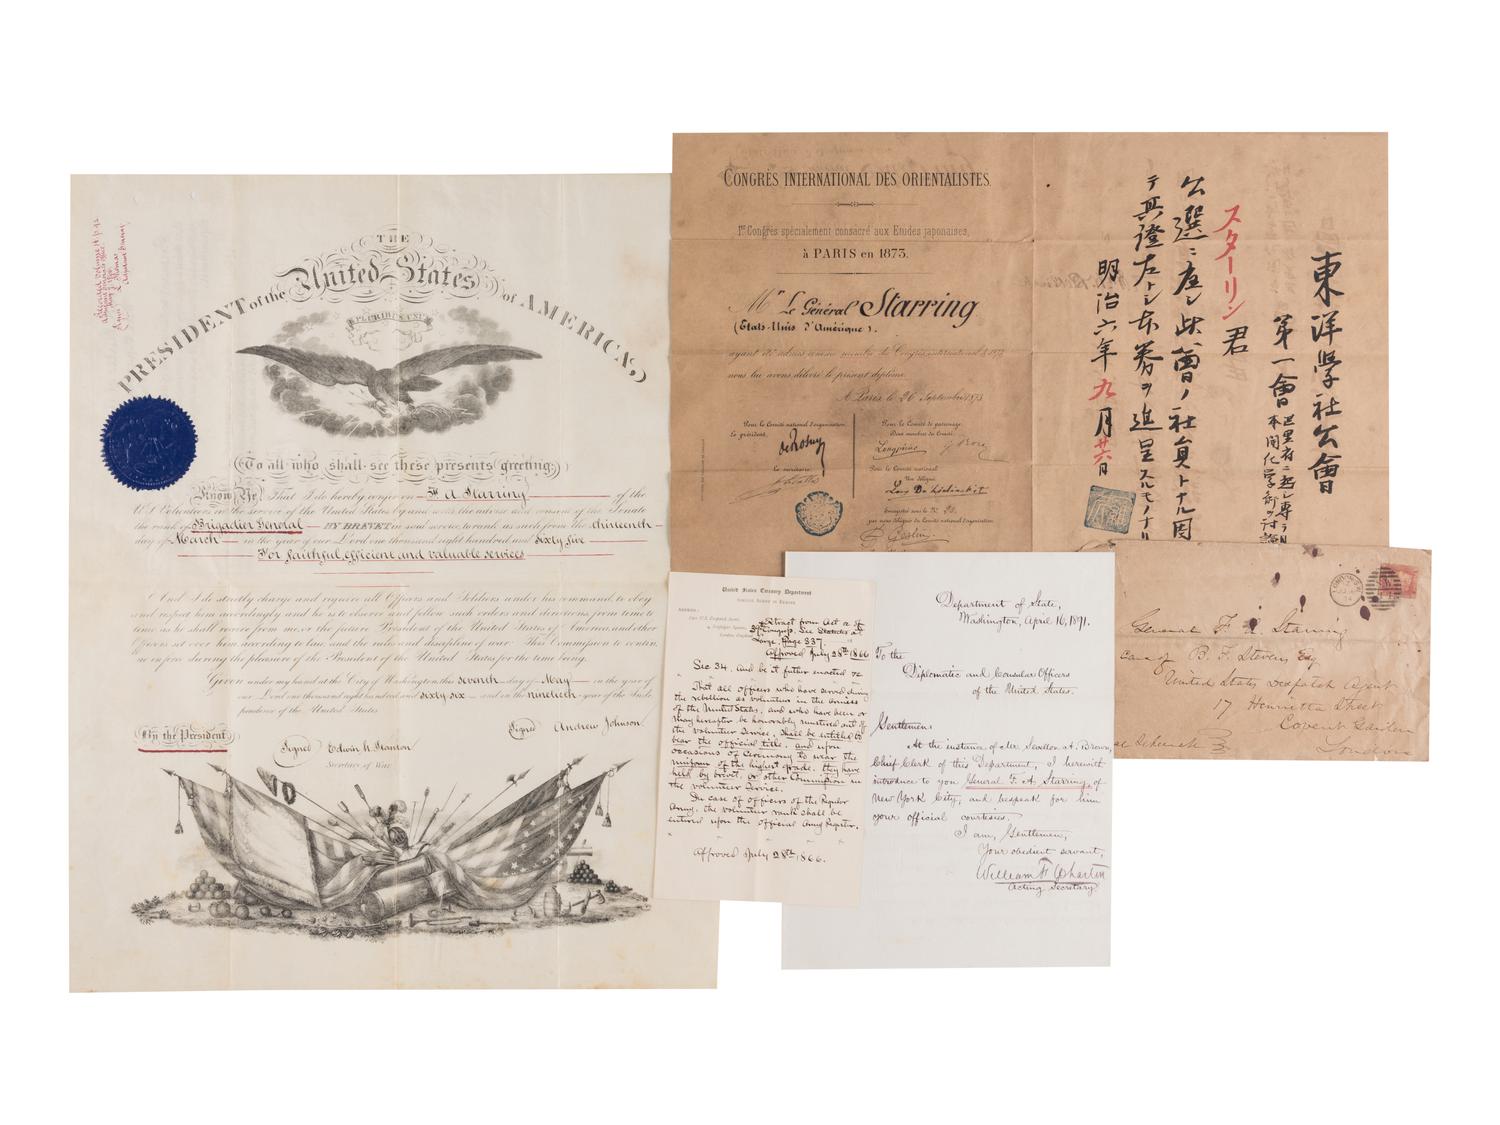 THE
United States
PRESIDENT of the of AMERICA,
E PLURIBUS UNUM
To all who shall see these presents greeting:
Know Ye, That I do hereby confer on F A Starring of the
U.S. Volunteers, in the service of the United States by and with the advice and consent of the Senate
the rank of Brigadier General BY BREVET in said service, to rank as such from the thirteenth
day of March in the year of our Lord one thousand eight hundred and sixty five
For faithful, efficient and valuable services
And I do strictly charge and require all Officers and Soldiers under his command, to obey
and respect him accordingly: and he is to observe and follow such orders and directions, from time to
time, as he shall receive from me, or the future President of the United States of America, and other
officers set over him according to law, and the rules and discipline of war. This Commission to contin-
ue in force during the pleasure of the President of the United States for the time being.
Given under my hand at the City of Washington, this seventh day of May in the year of
our Lord one thousand eight hundred and sixty six and in the nineteth year of the Inde
pendence of the United States.
Signed Andrew Johnson
By the President
Signed Edwin M. Stanton
Secretary of War
CONGRÈS INTERNATIONAL DES ORIENTALISTES.
1er Congrès spécialement consacré aux Etudes japonaises,
à PARIS en 1873.
Mr Le Général Starring
(États-Unis d'Amérique).
ayant été admis comme membre du Congrès international de 1873
nous lui avons délivré le présent diplôme.
A Paris le 26 Septembre 1873
Pour le Comité national d'organisation.
Le président,
de Rosny
Le secrétaire
Pour le Comité de patronage.
Deux membres du Comité
Longpérier
Pour le Comité national
Un délégué
Enregistré sous le No
par nous délégué du Comité national d'organisation
東洋学社公會
第一會
スターリン君
公選ニ應シ此會ノ社員トナル因
テ其證左トシ本券ヲ進呈スルモノナリ
明治六年九月廿六日
United States Treasury Department
Extract from Act of
Congress, See Statutes at
Large, Page 337.
Approved July 28th 1866
Sec 34. And be it futher enacted
That all officers who have served during
the rebellion as volunteer in the armies
of the United States, and who have been or
may hereafter be honorably mustered out of
the volunteer Service, shall be entitled to
bear the official title, and upon
occasions of Ceremony to wear the
uniform of the highest grade, they have
held by brevet, or other Commission in
the volunteer Service.
In case of officers of the Regular
Army, the volunteer rank shall be
entered upon the official Army Register.
Approved July 28th 1866.
Department of State,
Washington, April 16, 1891.
To the
Diplomatic and Consular Officers
of the United States.
Gentlemen:
At the instance of Mr. Sevellon A. Brown,
Chief Clerk of this Department, I herewith
introduce to you General F. A. Starring, of
New York City, and bespeak for him
your official courtesies.
I am, Gentlemen,
Your obedient servant,
William F Wharton
Acting Secretary
General F A. Starring
Care of B. F. Stevens Esq
United States Despatch Agent
17 Henrietta Street
Covent Garden
London